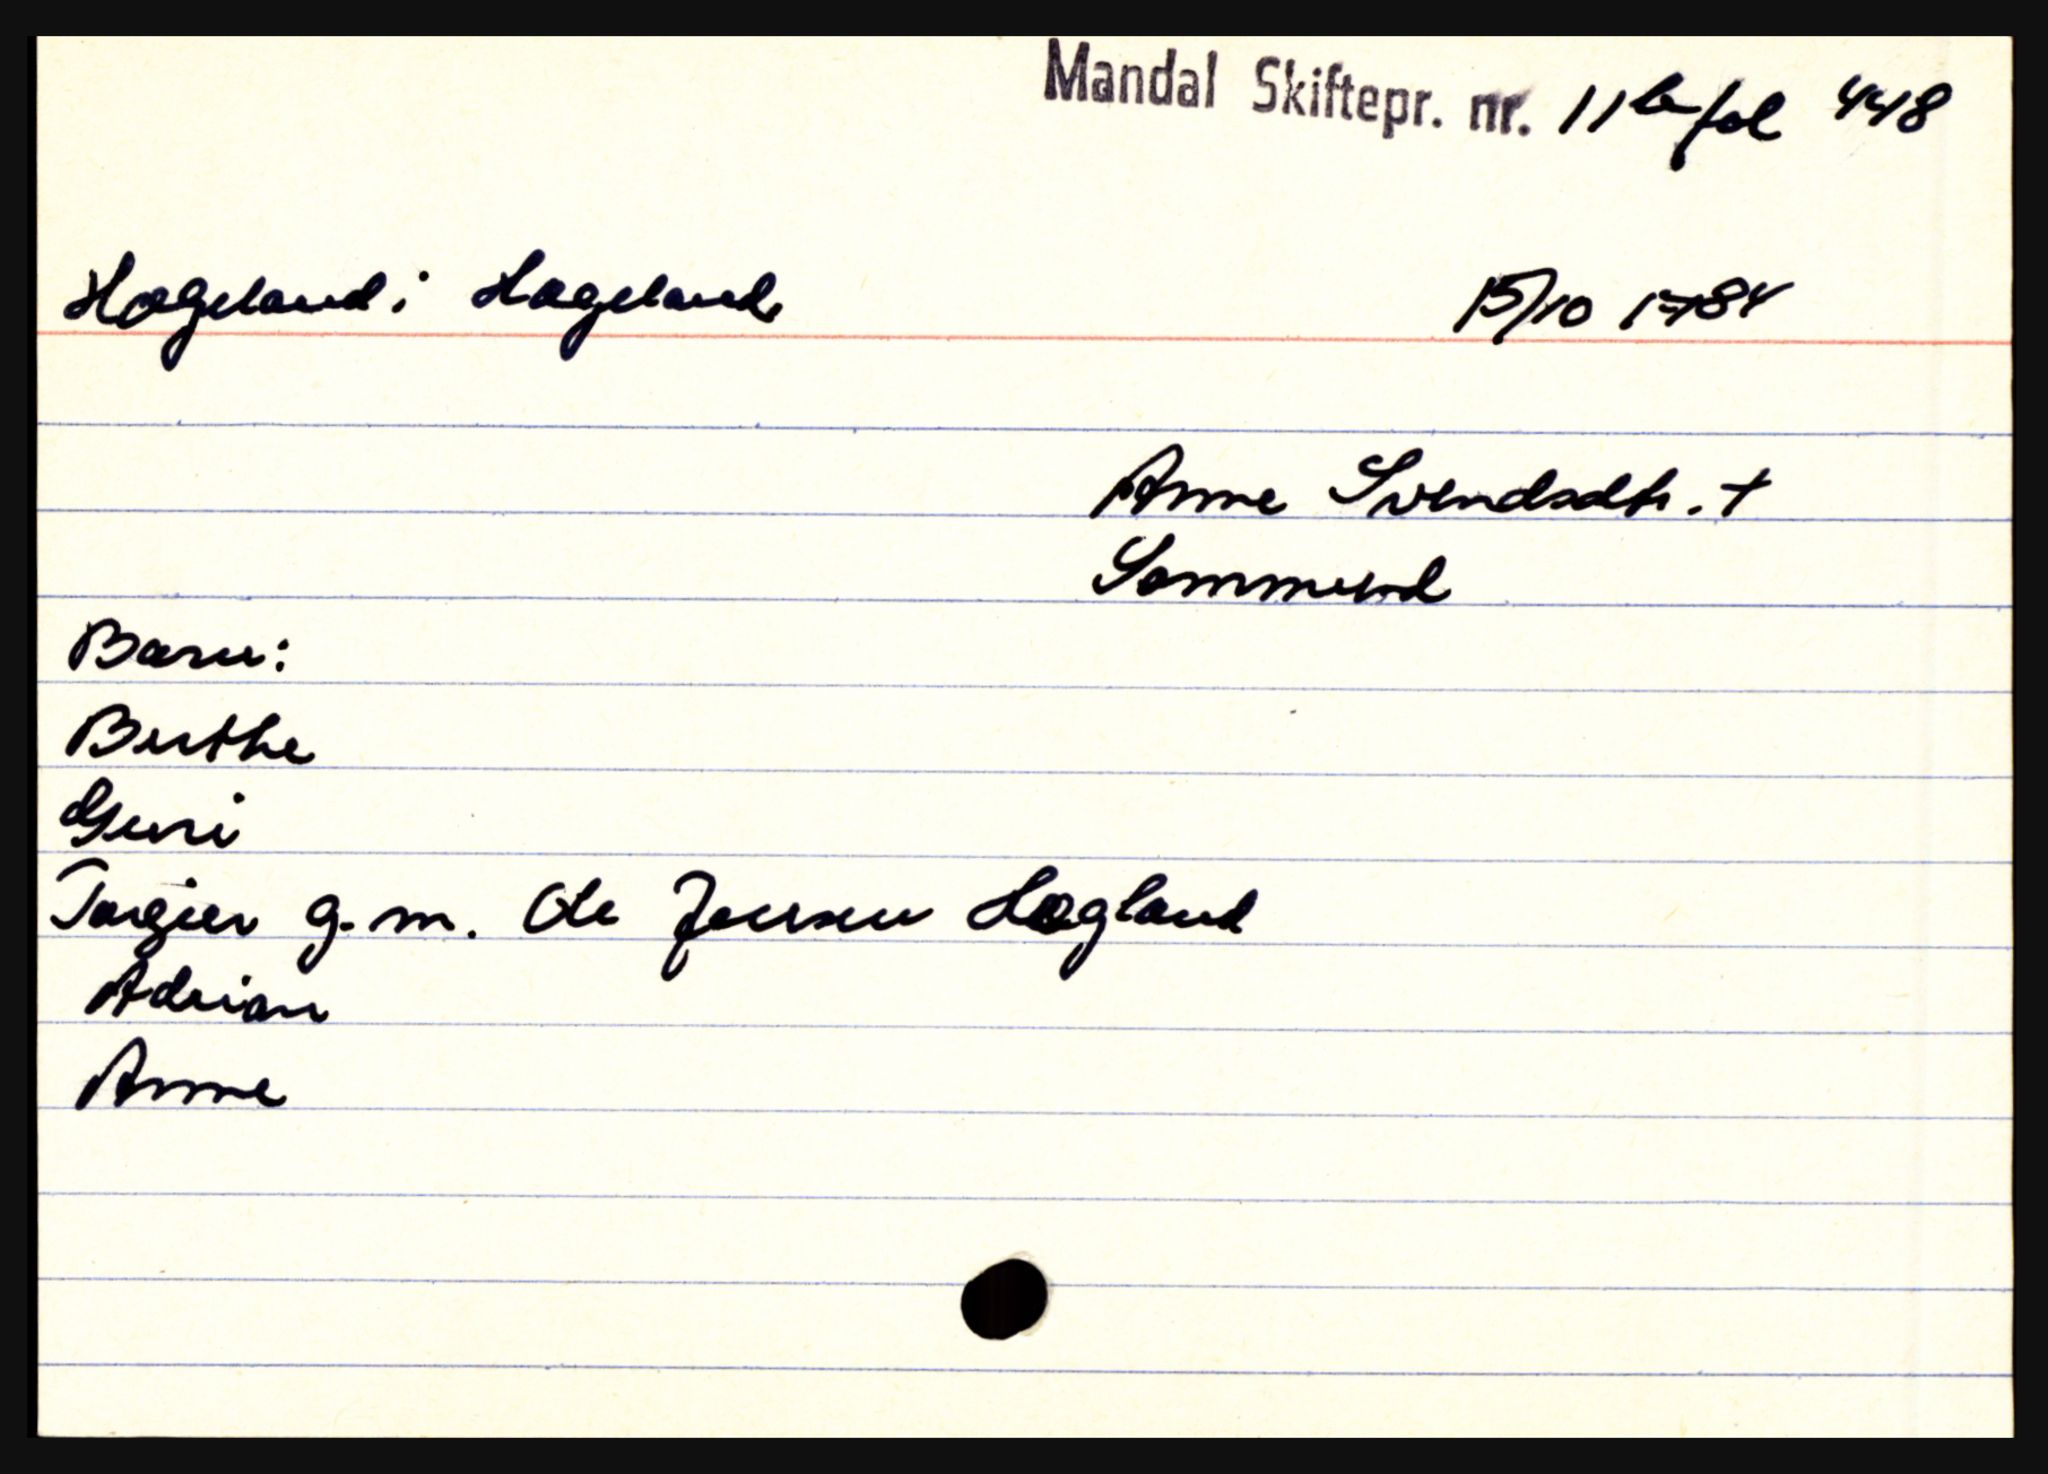 Mandal Skiftepr. nr. 11b fol 448
Hageland i Hageland 15/10 1784
Anne Svendsdtr. +
Sammund
Barn:
Berthe
Guri
Targier g. m. Ole Jensen Hagland
Adrian
Anne